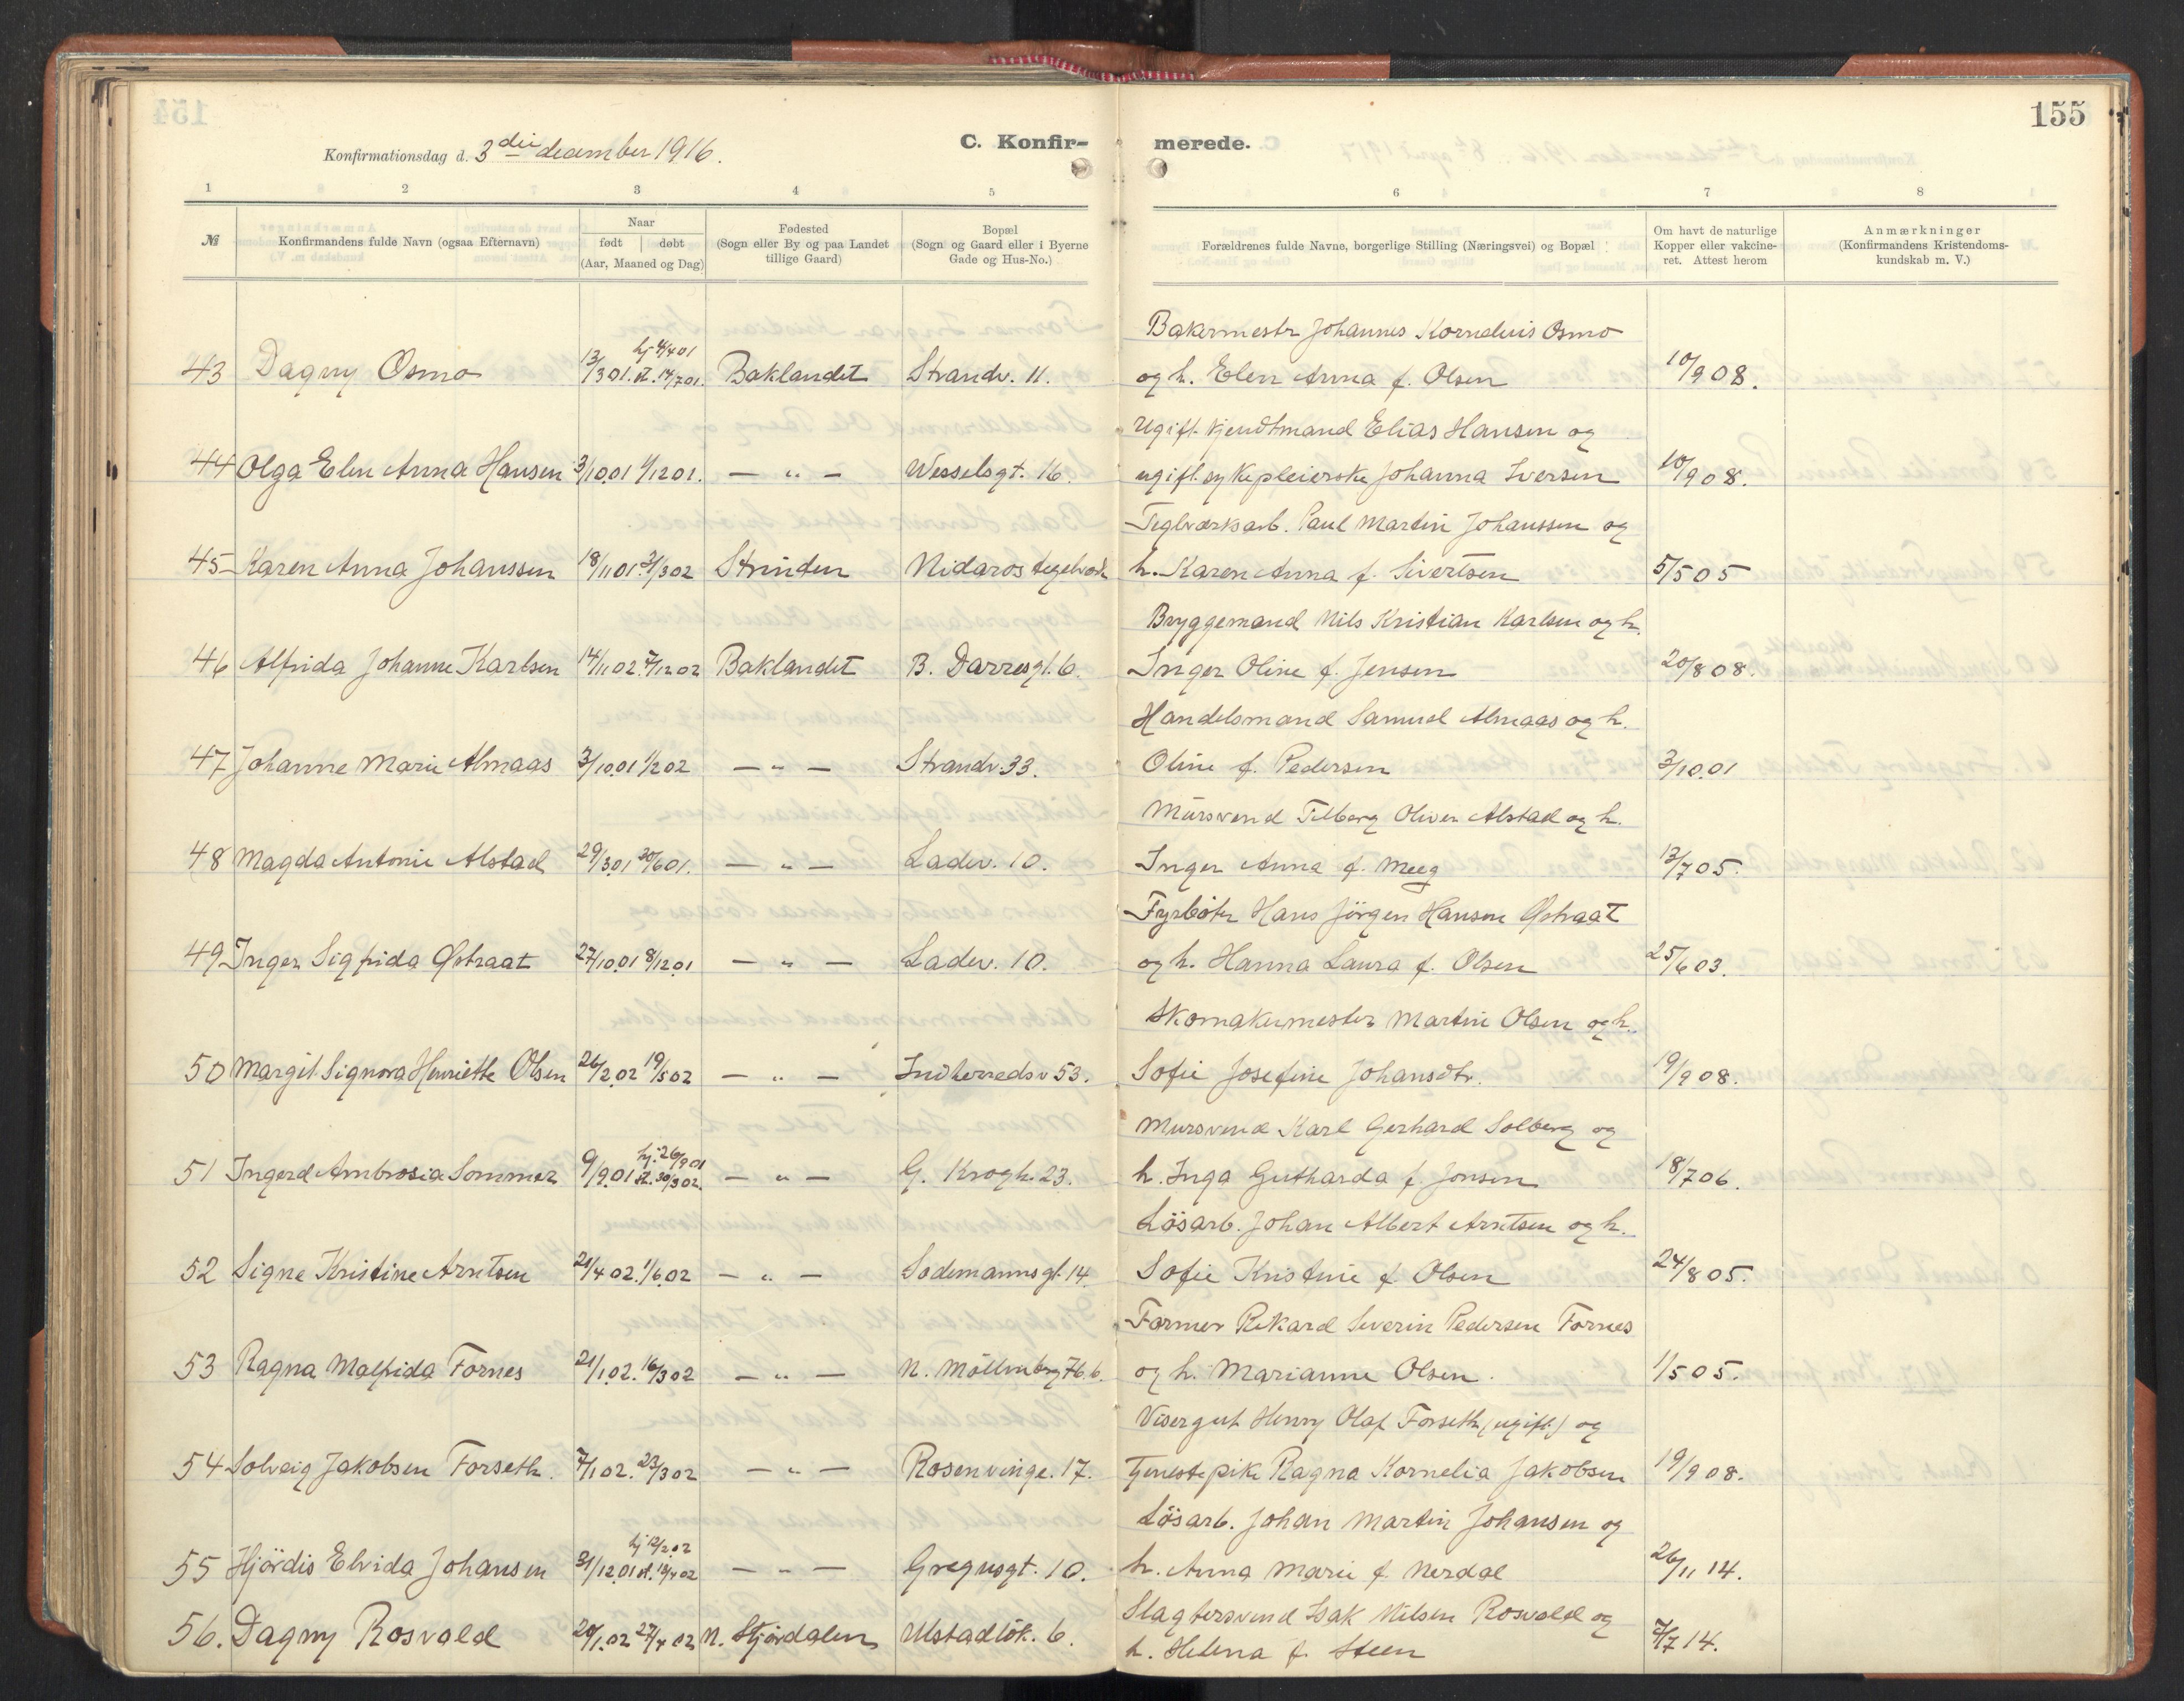 155
Konfirmationsdag d. 3die december 1916.
C. Konfir-
merede.
1 2 3 4 5 6 7 8
№ Konfirmandens fulde Navn (ogsaa Efternavn) Naar født døbt (Aar, Maaned og Dag) Fødested (Sogn eller By og paa Landet tillige Gaard) Bopæl (Sogn og Gaard eller i Byerne Gade og Hus-No.) Forældrenes fulde Navne, borgerlige Stilling (Næringsvei) og Bopæl Om havt de naturlige Kopper eller vakcineret. Attest herom Anmærkninger (Konfirmandens Kristendomskundskab m. V.)
Bakermestr Johannes Kornelius Osmo
43 Dagny Osmo 13/3 01. hj 4/4 01 st. 14/7 01. Baklandet Strandv. 11. og h. Elen Anna f. Olsen 10/9 08.
Ugift kjendtmand Elias Hansen og
44 Olga Elen Anna Hansen 3/10 01 1/12 01. — " — Wesselsgt. 16. ugift sykepleierske Johanna Iversen 10/9 08.
Teglværksarb. Paul Martin Johanssen og
45 Karen Anna Johanssen 18/11 01. 31/3 02 Strinden Nidaros tegelværk h. Karen Anna f. Sivertsen 5/5 05
Bryggemand Nils Kristian Karlsen og h.
46 Alfrida Johanne Karlsen 14/11 02. 7/12 02 Baklandet B. Darresgt. 6. Inger Oline f. Jensen 20/8 08.
Handelsmand Samuel Almaas og h.
47 Johanne Marie Almaas 3/10 01 1/2 02 — " — Strandv. 33. Oline f. Pedersen 3/10 01
Mursvend Tilberg Oliver Alstad og h.
48 Magda Antonie Alstad 29/3 01 30/6 01. — " — Ladev. 10. Inger Anna f. Meeg 13/7 05.
Fyrbøter Hans Jörgen Hansen Østraat
49 Inger Sigfrida Østraat 27/10 01 8/12 01 — " — Ladev. 10. og h. Hanna Laura f. Olsen 25/6 03.
Skomakermester Martin Olsen og h.
50 Margit Signora Henriette Olsen 26/2 02 19/5 02 — " — Indherredsv 53. Sofie Josefine Johansdtr. 19/9 08.
Mursvend Karl Gerhard Solberg og
51 Ingerd Ambrosia Sommer 9/9 01 hj. 26/9 01 st. 30/3 02. — " — G. Krogh. 23. h. Inga Gutharda f. Jonsen 18/7 06.
Lösarb. Johan Albert Arntsen og h.
52 Signe Kristine Arntsen 21/4 02. 1/6 02 — " — Sodemannsgt. 14. Sofie Kristine f. Olsen 24/8 05.
Farmer Rikard Severin Pedersen Fornes
53 Ragna Malfrida Fornes 21/1 02. 16/3 02 — " — N. Möllenberg 76 b. og h. Marianne Olsen. 1/5 05.
Visergut Henry Olaf Forseth (ugift) og
54 Solveig Jakobsen Forseth. 7/1 02. 23/3 02 — " — Rosenvinge. 17. tjenestepike Ragna Kornelia Jakobsen 19/9 08.
Lösarb. Johan Martin Johansen og
55 Hjördis Elvida Johansen 31/12 01 hj 12/2 02 st. 13/4 02 — " — Gregusgt. 10. h. Anna Marie f. Nerdal 26/11 14.
Slagtersvend Isak Nilsen Rosvald og
56. Dagny Rosvald 20/1 02 27/4 02 N. Stjördalen Ulstadløk. 6. h. Helena f. Steen 7/7 14.